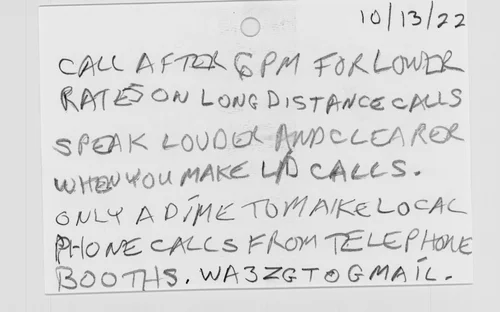 10/13/22
CALL AFTER 6 PM FOR LOWER
RATES ON LONG DISTANCE CALLS
SPEAK LOUDER AND CLEARER
WHEN YOU MAKE L/D CALLS.
ONLY A DIME TO MAKE LOCAL
PHONE CALLS FROM TELEPHONE
BOOTHS. WA3ZGTOGMAIL.